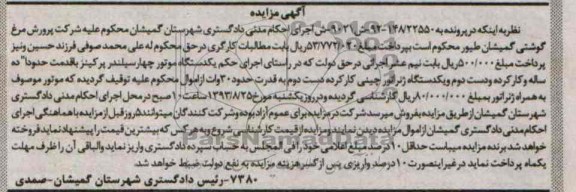 آگهی مزایده
نظر به اینکه در پرونده به ۹۲-۱۴۸/۲۲۵۵۰ش ۹۰۲۱ش اجرای احکام مدنی دادگستری شهرستان گمیشان محکوم علیه شرکت پرورش مرغ
گوشتی گمیشان طیور محکوم است بپرداخت مبلغ ۵۳/۷۷۲/۰۴۰ریال بابت مطالبات کارگری در حق محکوم له علی محمد صوفی فرزند حسین ونیز
پرداخت مبلغ ۵۰۰/۰۰۰ریال بابت نیم عشر اجرائی در حق دولت که در راستای اجرای حکم یکدستگاه موتور چهار سیلندر پرکینز باقدمت حدودا" ده
ساله و کار کرده ودست دوم ویکدستگاه ژنراتور چینی کار کرده دست دوم به قدرت حدود ۳۰وات از اموال محکوم علیه توقیف گردیده که موتور موصوف
به همراه ژنراتور بمبلغ ۸۰/۰۰۰/۰۰۰ریال کارشناسی گردیده ودر روز یکشنبه مورخ ۱۳۹۳/۸/۲۵ ساعت ۱۰ صبح در محل اجرای احکام مدنی دادگستری
شهرستان گمیشان از طریق مزایده بفروش میرسد شرکت در مزایده برای عموم آزاد بوده وشرکت کنندگان میتوانند ۵روز قبل از مزایده با هماهنگی اجرای
احکام مدنی دادگستری گمیشان از اموال مزایده دیدن نمایند ومزایده از قیمت کارشناسی شروع وبه هر کس که بیشترین قیمت را پیشنهاد نماید فروخته
خواهد شد برنده مزایده میبایست حداقل ۱۰درصد مبلغ اعلامی خود را فی المجلس به حساب سپرده دادگستری واریز نماید والباقی آن را ظرف مهلت
یکماه پرداخت نماید در غیر اینصورت ۱۰درصد واریزی پس از کسر هزینه مزایده به نفع دولت ضبط خواهد شد.
۷۳۸۰-رئیس دادگستری شهرستان گمیشان-صمدی